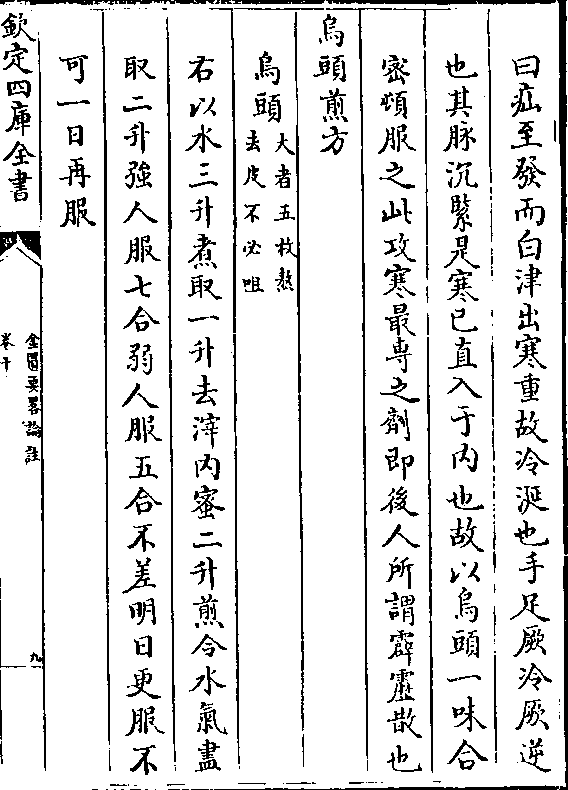 曰疝至發而白津出寒重故冷涎也手足厥冷厥逆
也其脉沉緊是寒已直入于内也故以烏頭一味合
宻頓服之此攻寒最専之劑即後人所謂霹靂散也
烏頭煎方
烏頭大者五枚熬去皮不必咀
右以水三升煮取一升去滓内蜜二升煎令水氣盡
取二升強人服七合弱人服五合不差明日更服不
可一日再服
欽定四庫全書
金匱要畧論註
卷十
九